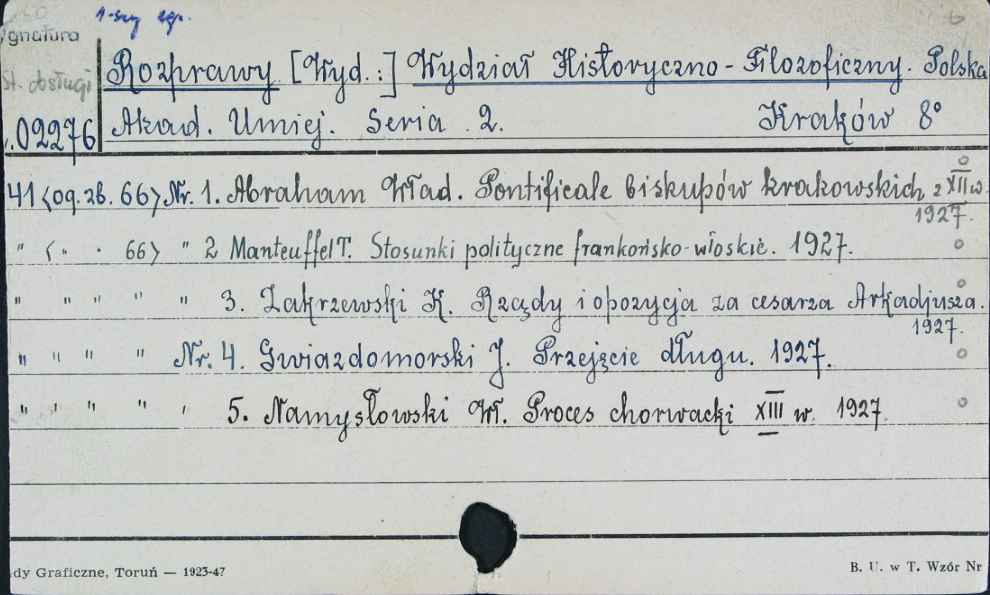 1-szy egz.
ygnatura
st. obsługi
Rozprawy [Wyd.:] Wydział Historyczno-Filozoficzny. Polska
.02276 Akad. Umiej. Seria .2. Kraków 8°
41 <og. zb. 66> Nr. 1. Abraham Wład. Pontificale biskupów krakowskich z XII w.
1927.
" <" . 66> " 2 Manteuffel T. Stosunki polityczne frankońsko-włoskie. 1927.
" " " " " 3. Zakrzewski K. Rządy i opozycja za cesarza Arkadjusza.
1927.
" " " " Nr. 4. Gwiazdomorski J. Przejęcie długu. 1927.
" " " " " 5. Namysłowski Wł. Proces chorwacki XIII w. 1927.
dy Graficzne, Toruń — 1923-47
B. U. w T. Wzór Nr